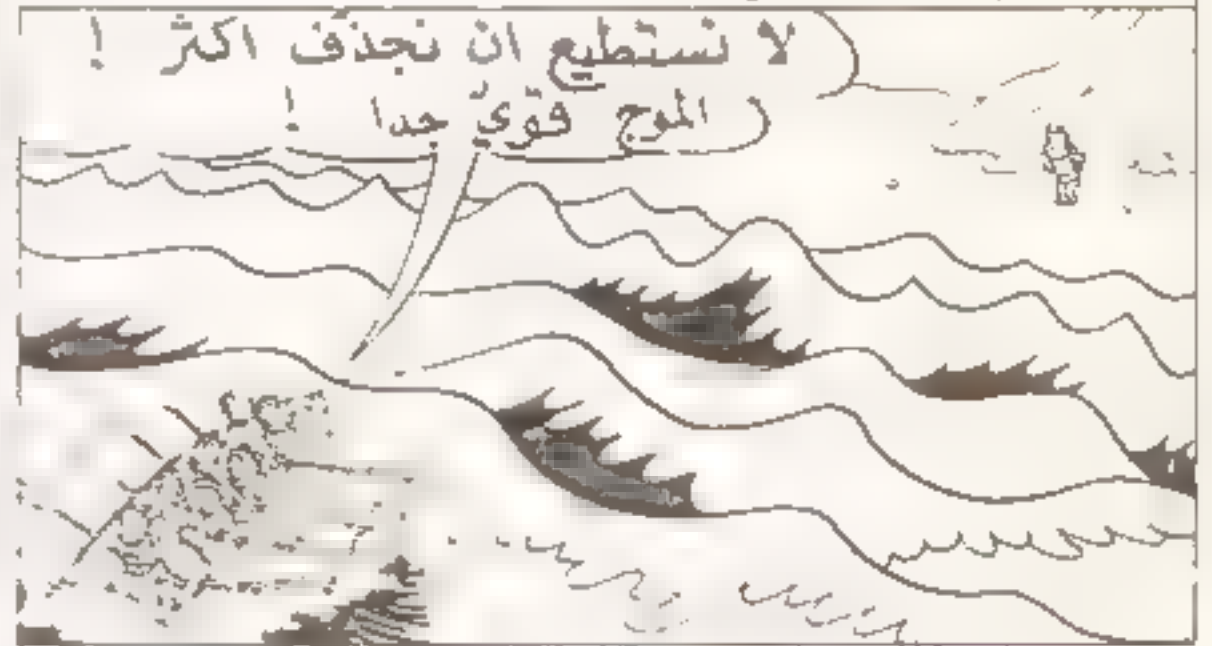 لا نستطيع ان نجذّف اكثر !
الموج قوّيّ جدا !